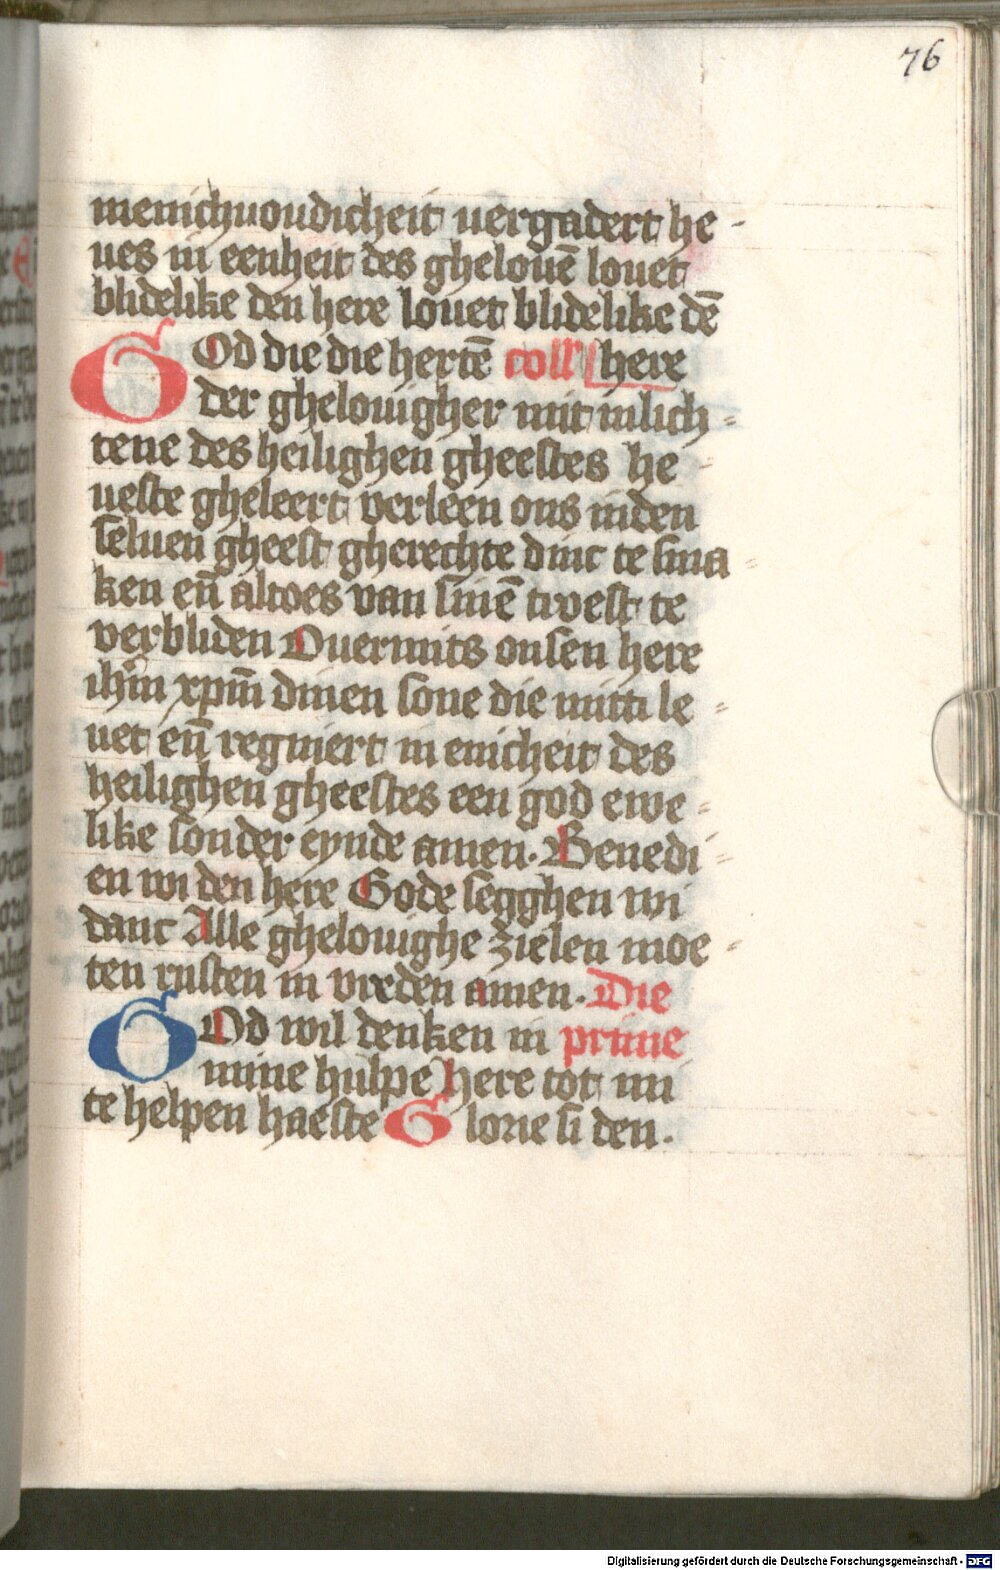 76
menichuoudicheit uergadert he-
ues in eenheit des ghelouē louet
blidelike den here louet blidelike dē
GOd die die hertē coll here
der ghelouigher mit inlich-
tene des heilighen gheestes he-
ueste gheleert verleen ons inden
seluen gheest gherechte dinc te sma-
ken en̄ altoes van sinē troest te
verbliden Ouermits onsen here
ihm̄ xpm̄ dinen sone die mitti le-
uet en̄ regniert in enicheit des
heilighen gheestes een god ewe-
like sonder eynde amen. Benedi-
en wi den here Gode segghen wi
danc Alle ghelouighe zielen moe-
ten rusten in vreden amen. Die
GOd wil denken in prime
mine hulpe here tot mi
te helpen haeste Glorie si den.
Digitalisierung gefördert durch die Deutsche Forschungsgemeinschaft - DFG